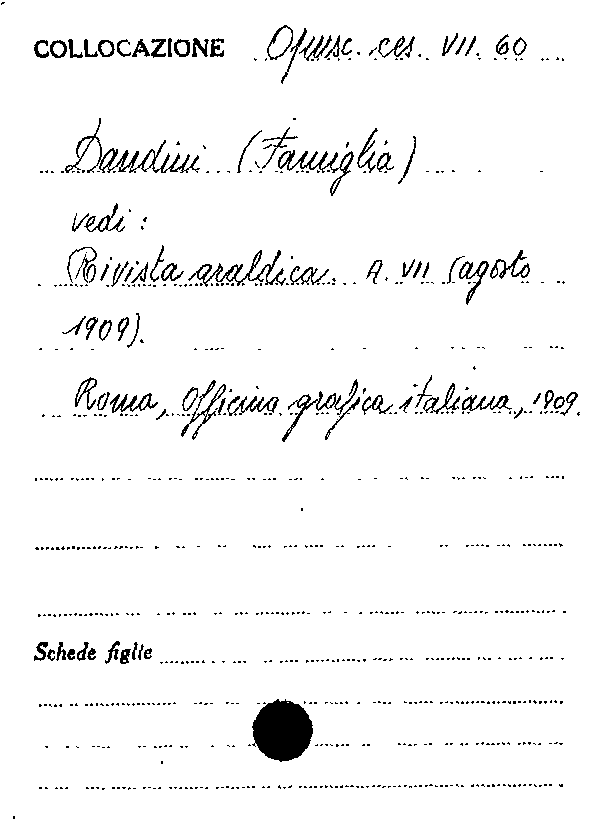 COLLOCAZIONE Opusc. ces. VII. 60
Dandini (Famiglia)
vedi :
Rivista araldica. A. VII (agosto
1909).
Roma, Officina grafica italiana, 1909.
Schede figlie